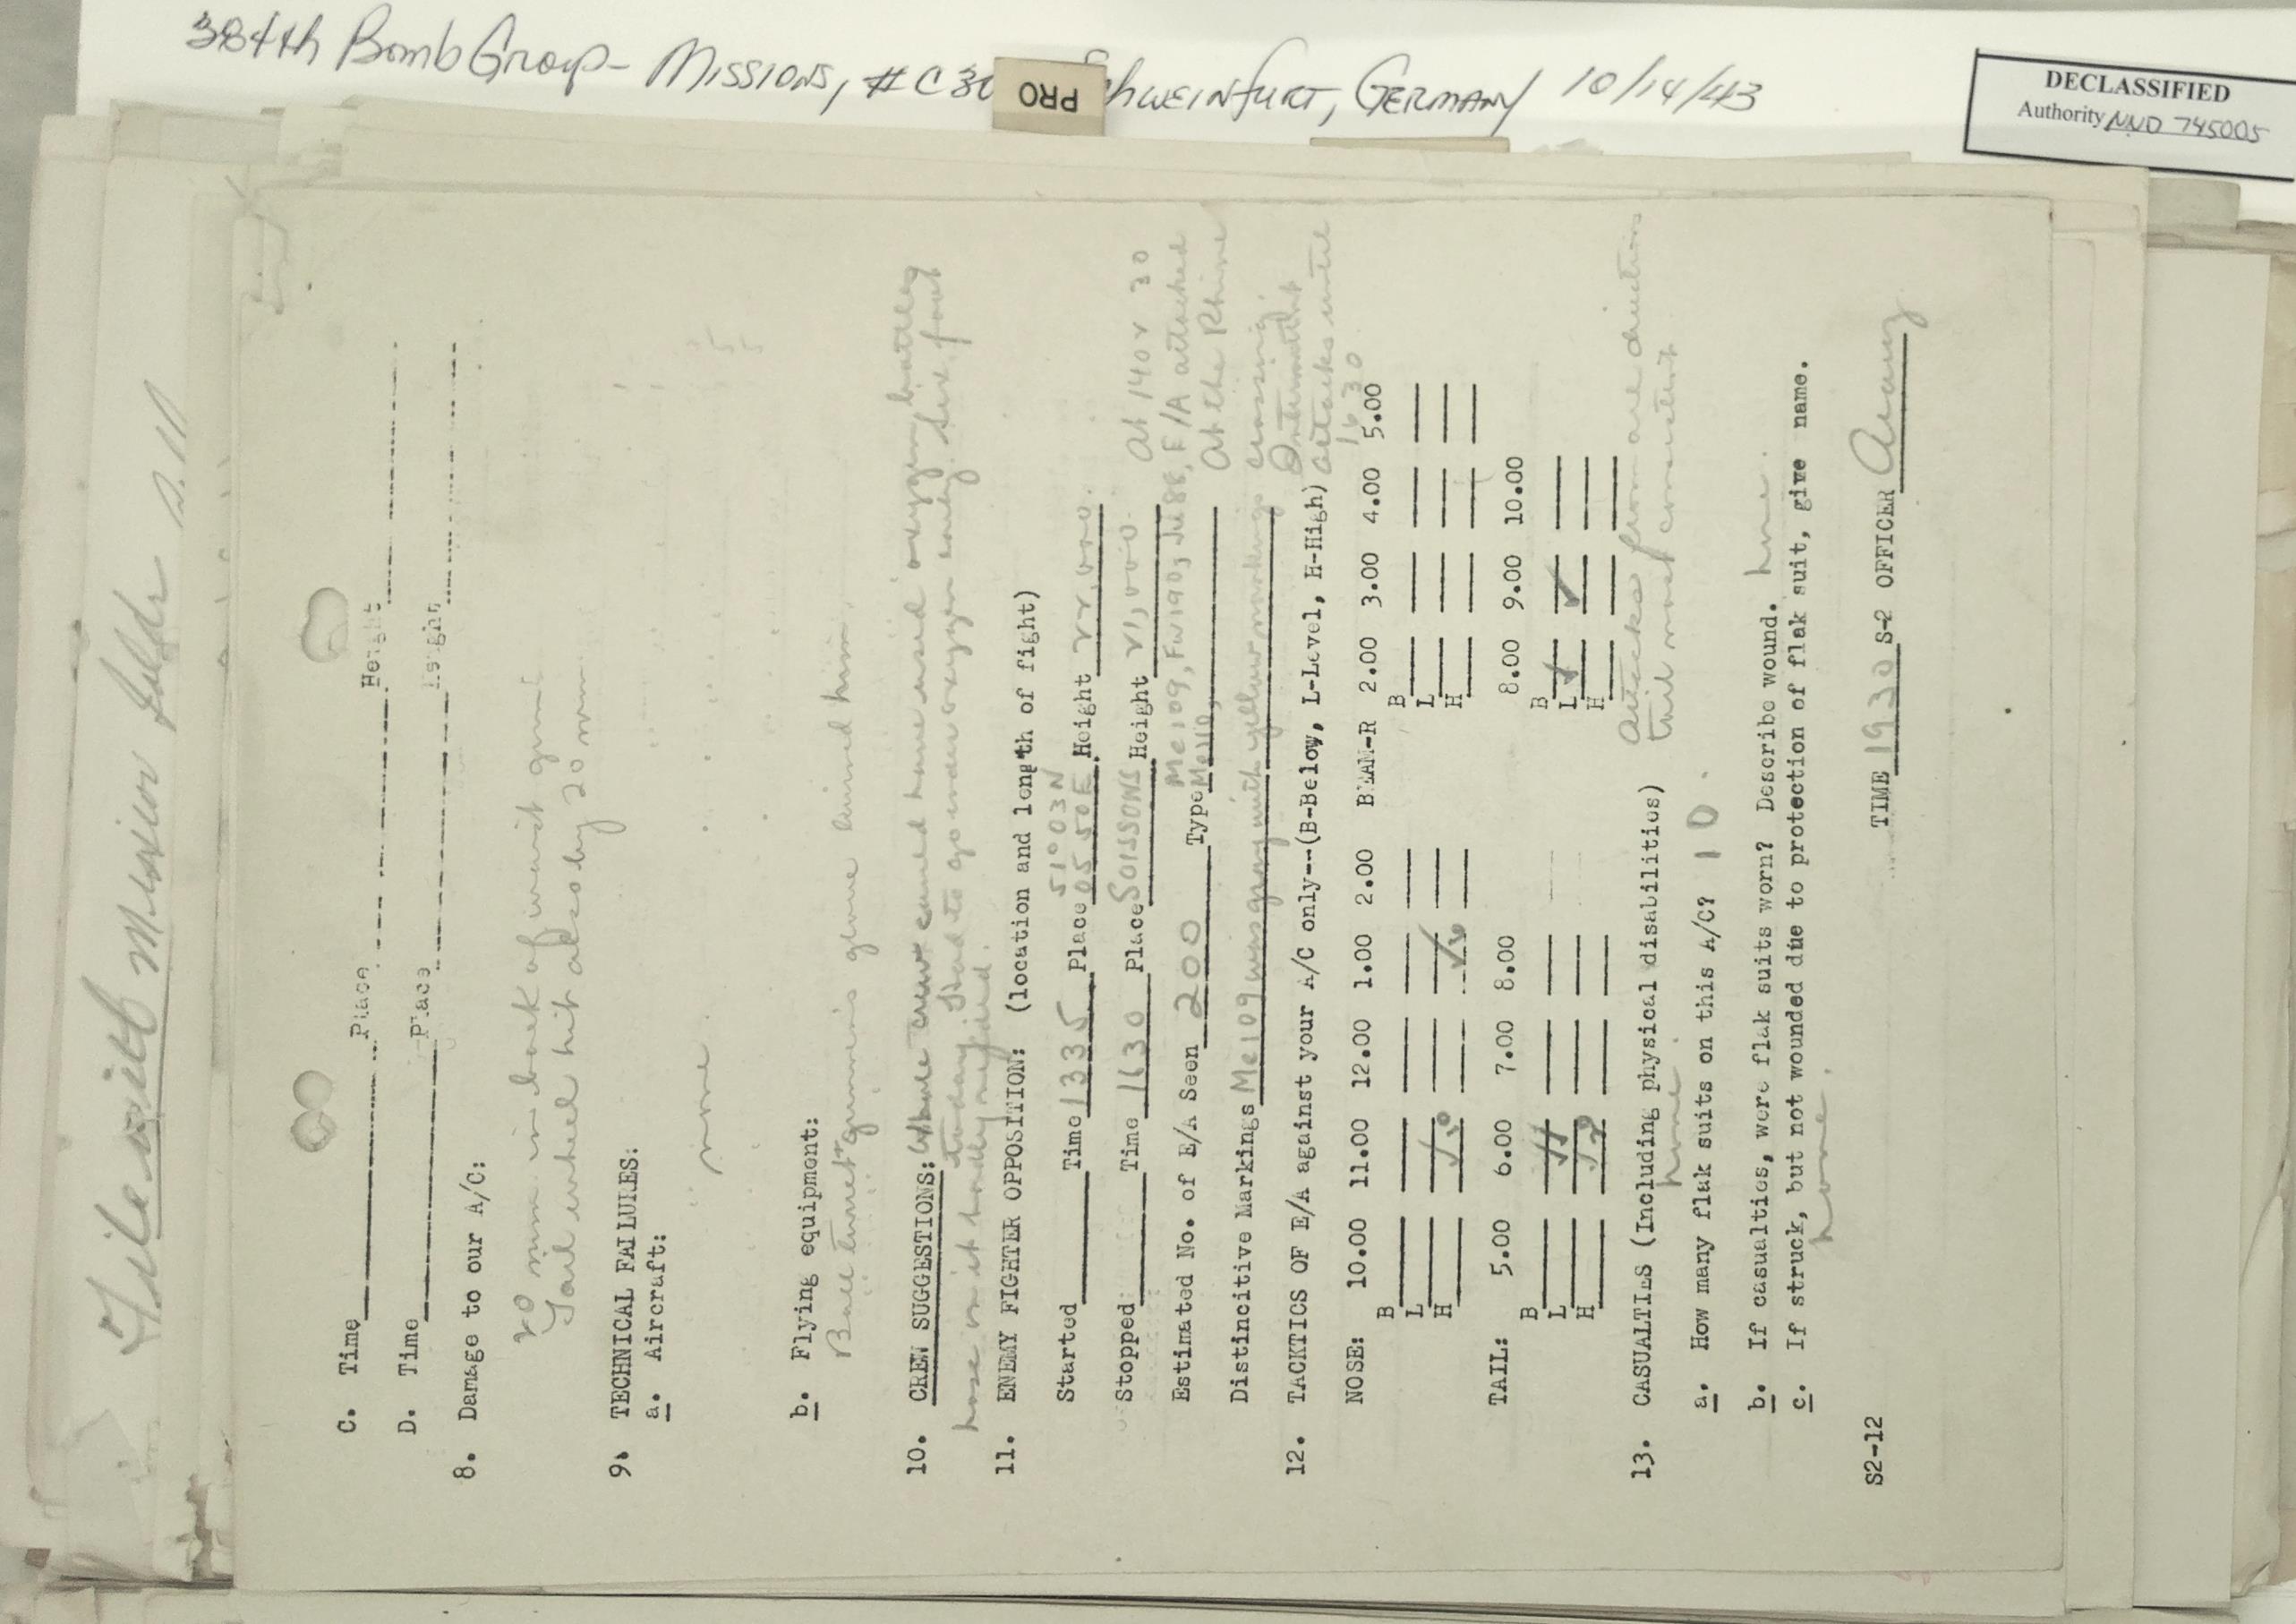 384th Bomb Group - Missions, #C30 Schweinfurt, Germany 10/14/43
PRO
DECLASSIFIED
Authority NND 745005
File with Mission
C. Time Place Height
D. Time Place Height
8. Damage to our A/C:
20 mm in back of waist gun
Tail wheel hit also by 20 mm
9. TECHNICAL FAILURES:
a. Aircraft:
none.
b. Flying equipment:
Ball turret gunner's glove
10. CREW SUGGESTIONS: Whole crew could have used oxygen bottles
today. Had to go under oxygen early. Five foot
hose on it badly needed.
11. ENEMY FIGHTER OPPOSITION: (location and length of fight)
51°03N
Started Time 1335 Place 05 50E Height 22,000.
Stopped Time 1630 Place SOISSONS Height 21,000. At 1402 30
Me109, Fw190, Ju88, E/A attacked
Estimated No. of E/A Seen 200 Type Me110, At the Rhine
Distincitive Markings Me109 was gray with yellow markings crossing.
Intermittent
12. TACKTICS OF E/A against your A/C only--(B-Below, L-Level, H-High) attacks until
1630
NOSE: 10.00 11.00 12.00 1.00 2.00 BEAM-R 2.00 3.00 4.00 5.00
B B
L L
H H
TAIL: 5.00 6.00 7.00 8.00 8.00 9.00 10.00
B B
L L
H H
Attacks from all directions
tail most consistent
13. CASUALTIES (Including physical disabilities)
none.
a. How many flak suits on this A/C? 10.
b. If casualties, were flak suits worn? Describe wound. none.
c. If struck, but not wounded due to protection of flak suit, give name.
none.
TIME 1930 S-2 OFFICER
S2-12